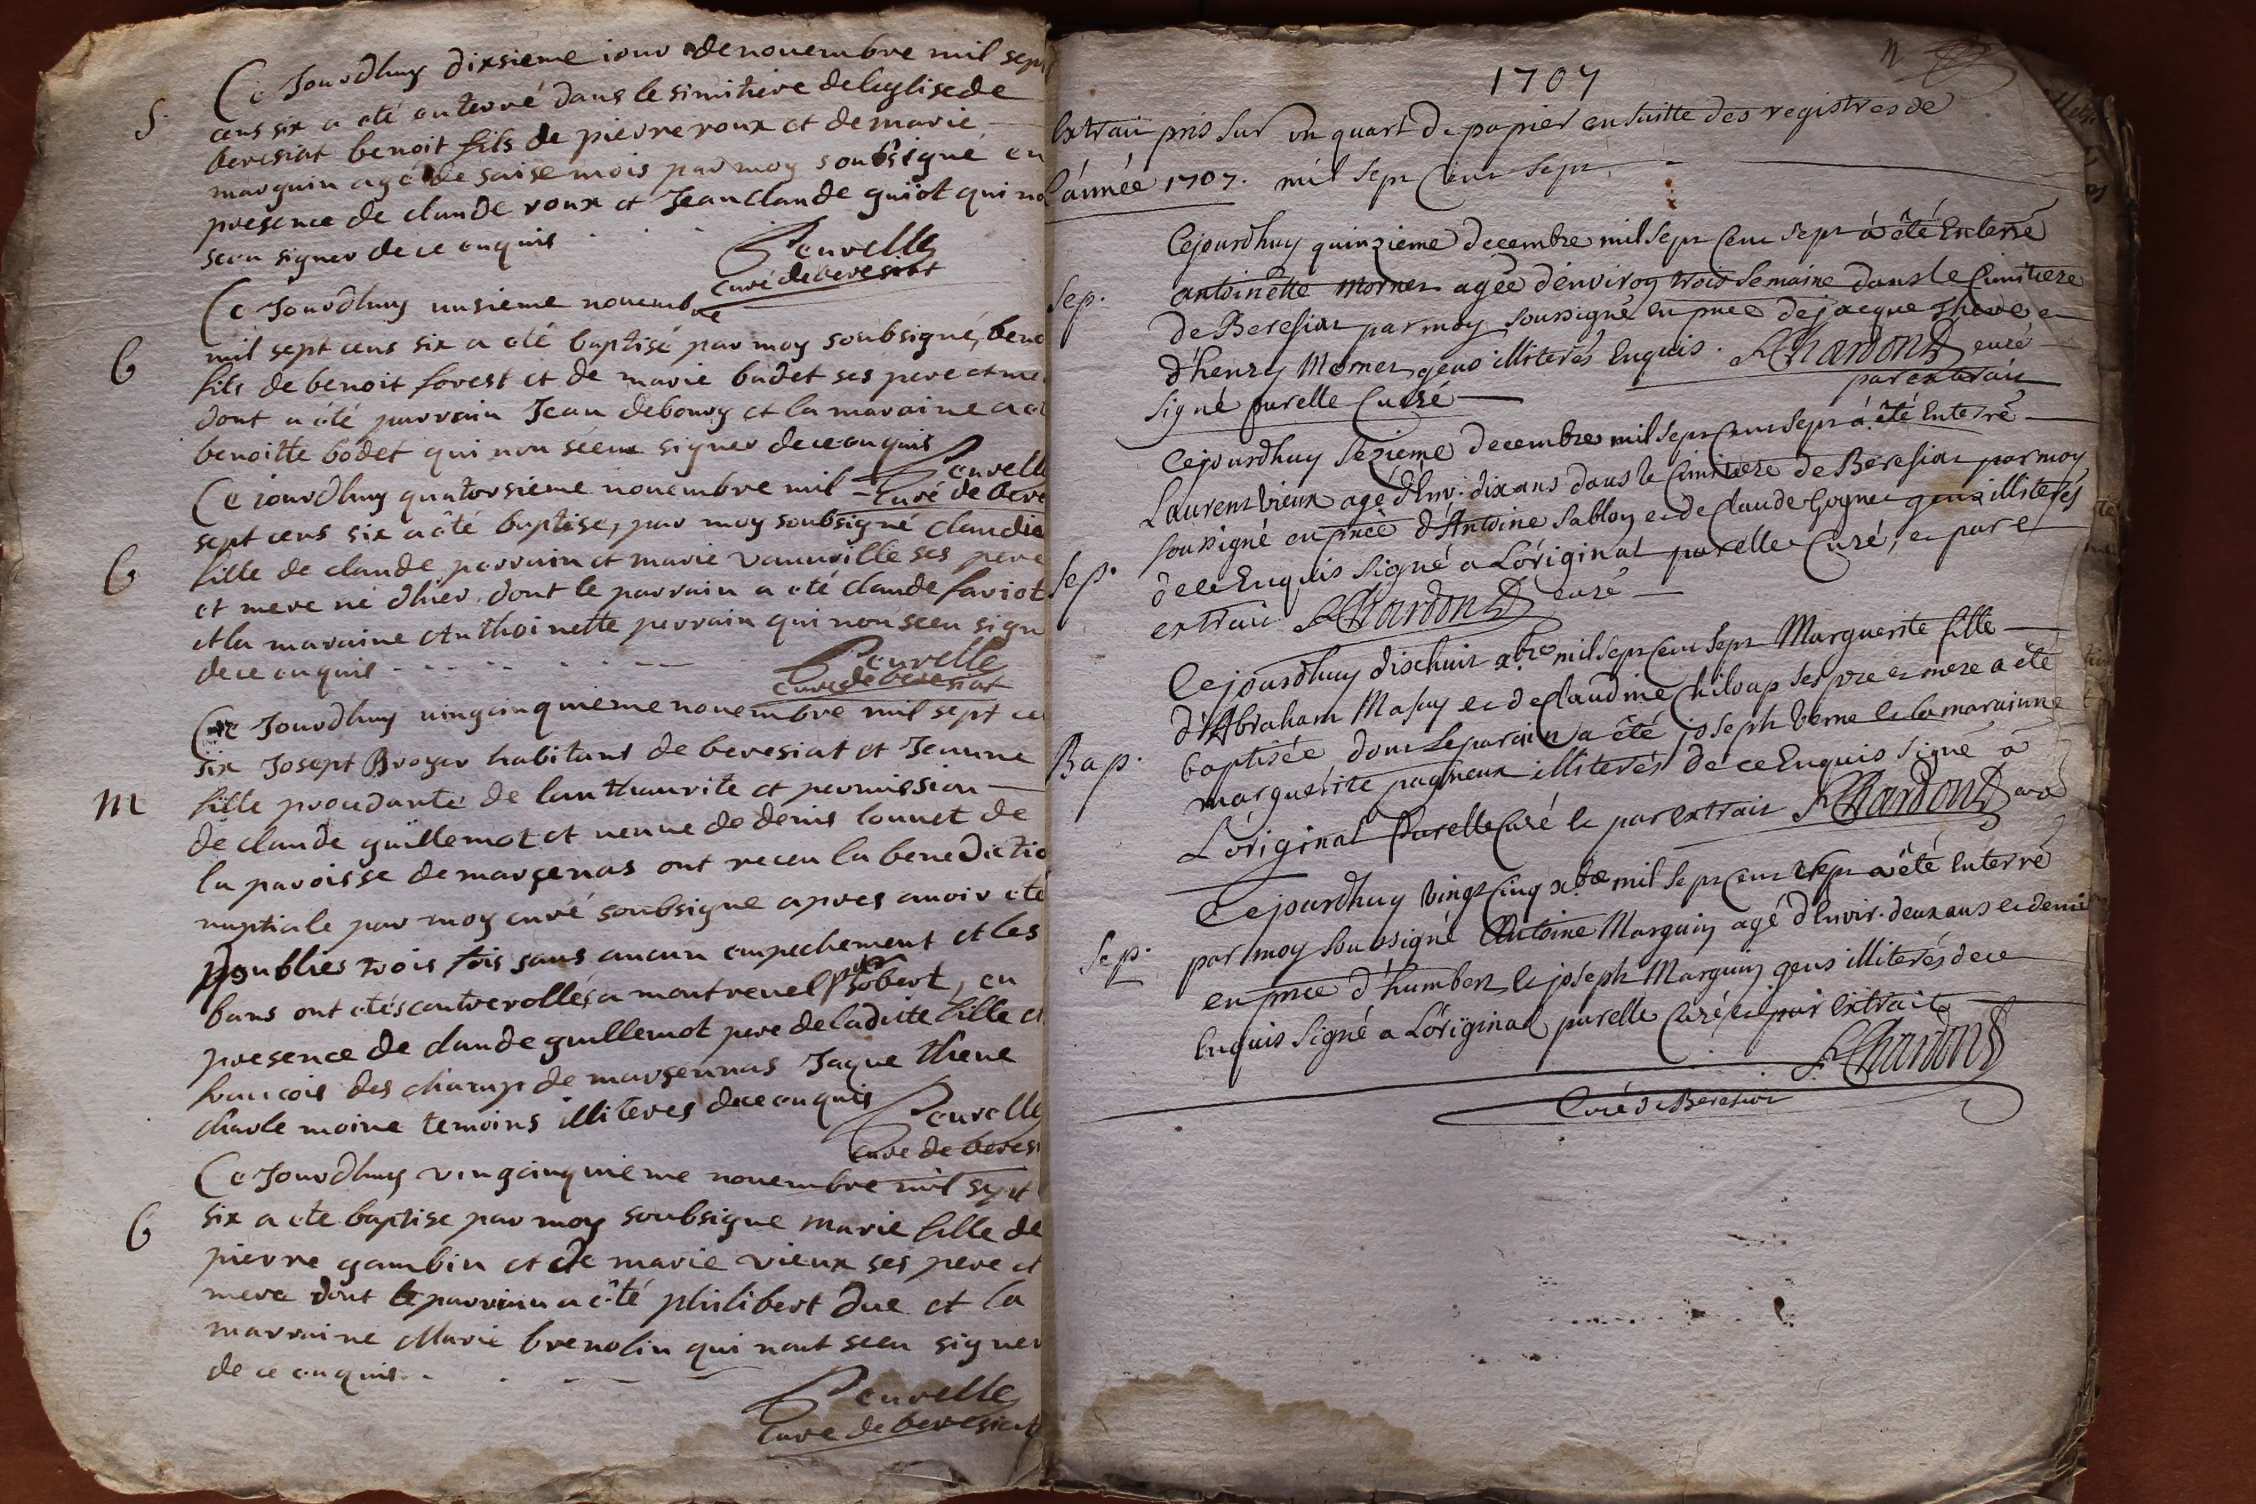 S.
Ce Jourdhuy dixsieme iour de nouembre mil sept
cens six a oté enterré dans le simitiere de leglise de
beresiat benoit fils de pierre roux et de marie
marguin agé de saise mois par moy soubsigné en
presence de claude roux et Jean claude guiot qui no
sceu signer de ce enquis
Peurelle
curé de beresiat
Ce Jourdhuy unsieme nouembre
B
mil sept cens six a oté baptisé par moy soubsigné, beno
fils de benoit forest et de marie badet ses pere et me
dont a oté parrain Jean debourg et la maraine a o
benoitte bodet qui non sceu signer de ce enquis
Peurelle
curé de bere
Ce iourdhuy quatorsieme nouembre mil
B
sept cens six a oté baptise, par moy soubsigné claudie
fille de claude perrain et marie vanurille ses pere
et mere né dhier dont le parrain a oté claude fariot
et la maraine Anthoinette perrain qui non sceu sign
de ce enquis
Peurelle
curé de beresiat
Ce Jourdhuy vingcinquieme nouembre mil sept ce
six Josept Broyer habitant de beresiat et Jeanne
M
fille procedante de lauthaurite et permission
de claude guillemot et ueuue de denis louuet de
la paroisse de marsenas ont receu la benedictio
nuptiale par moy curé soubsigne apres auoir ete
publies trois fois sans aucun empechement et les
bans ont otés controrollés a montreuel par robert, en
presence de claude guillemot pere de laditte fille et
francois des champ de marsennas Jaque theue
charle moine temoins illiteres de ce enquis
Peurelle
cure de beres
Ce Jourdhuy vingcinquieme nouembre mil sept
B
six a ote baptise par moy soubsigne marie fille de
pierre gambin et de marie vieux ses pere et
mere dont le parrain a oté philibert Due et la
marraine Marie brenolin qui nont sceu signer
de ce enquis
Peurelle
cure de beresiat
1707
Extrait pris sur un quart de papier ensuitte des registres de
L'année 1707. mil sept Cent sept
Cejourdhuy quinzieme decembre mil sept Cent sept à été Enterré
Sep.
antoinette Morner agée d'environ trois Semaine dans le Cimitiere
de Beresiat par moy soussigné en pnce de jacque Theve et
d'henry Morner gens illiterés Enquis. F Chardon curé
signé purelle Curé par extrait
Cejourdhuy sezieme decembre mil sept Cent sept à été Enterré
Laurent Vieux agé d'Env. dix ans dans le Cimitiere de Beresiat par moy
soussigné en pnce d'Antoine Sablon et de Claude Gogne gens illiterés
Sep.
de ce Enquis signé a L'original purelle Curé, et par
extrait F Chardon curé
Cejourdhuy dixhuit xbre mil sept Cent sept Marguerite fille
d'Abraham Masuy et de Claudine Chiloup ses pere et mere a été
Bap.
baptisée dont Le parain a été joseph Verne et la marainne
marguerite pagneux illiterés de ce Enquis signé à
L'original Purelle Curé et par extrait F Chardon curé
Cejourdhuy Vingt Cinq xbre mil sept Cent sept a été Enterré
Sep.
par moy soussigné Antoine Marguin agé d'Envir. deux ans et demi
en pnce d'humbert et joseph Marguin gens illiterés de ce
Enquis signé a L'original purelle Curé et par extrait
F Chardon
Curé de Beresiat